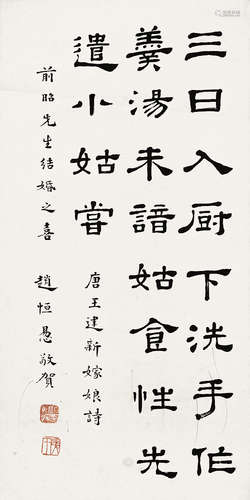 三日入厨下洗手作
羹湯未諳姑食性先
遣小姑嘗
唐王建新嫁娘詩
前昭先生結婚之喜
趙恒惖敬賀